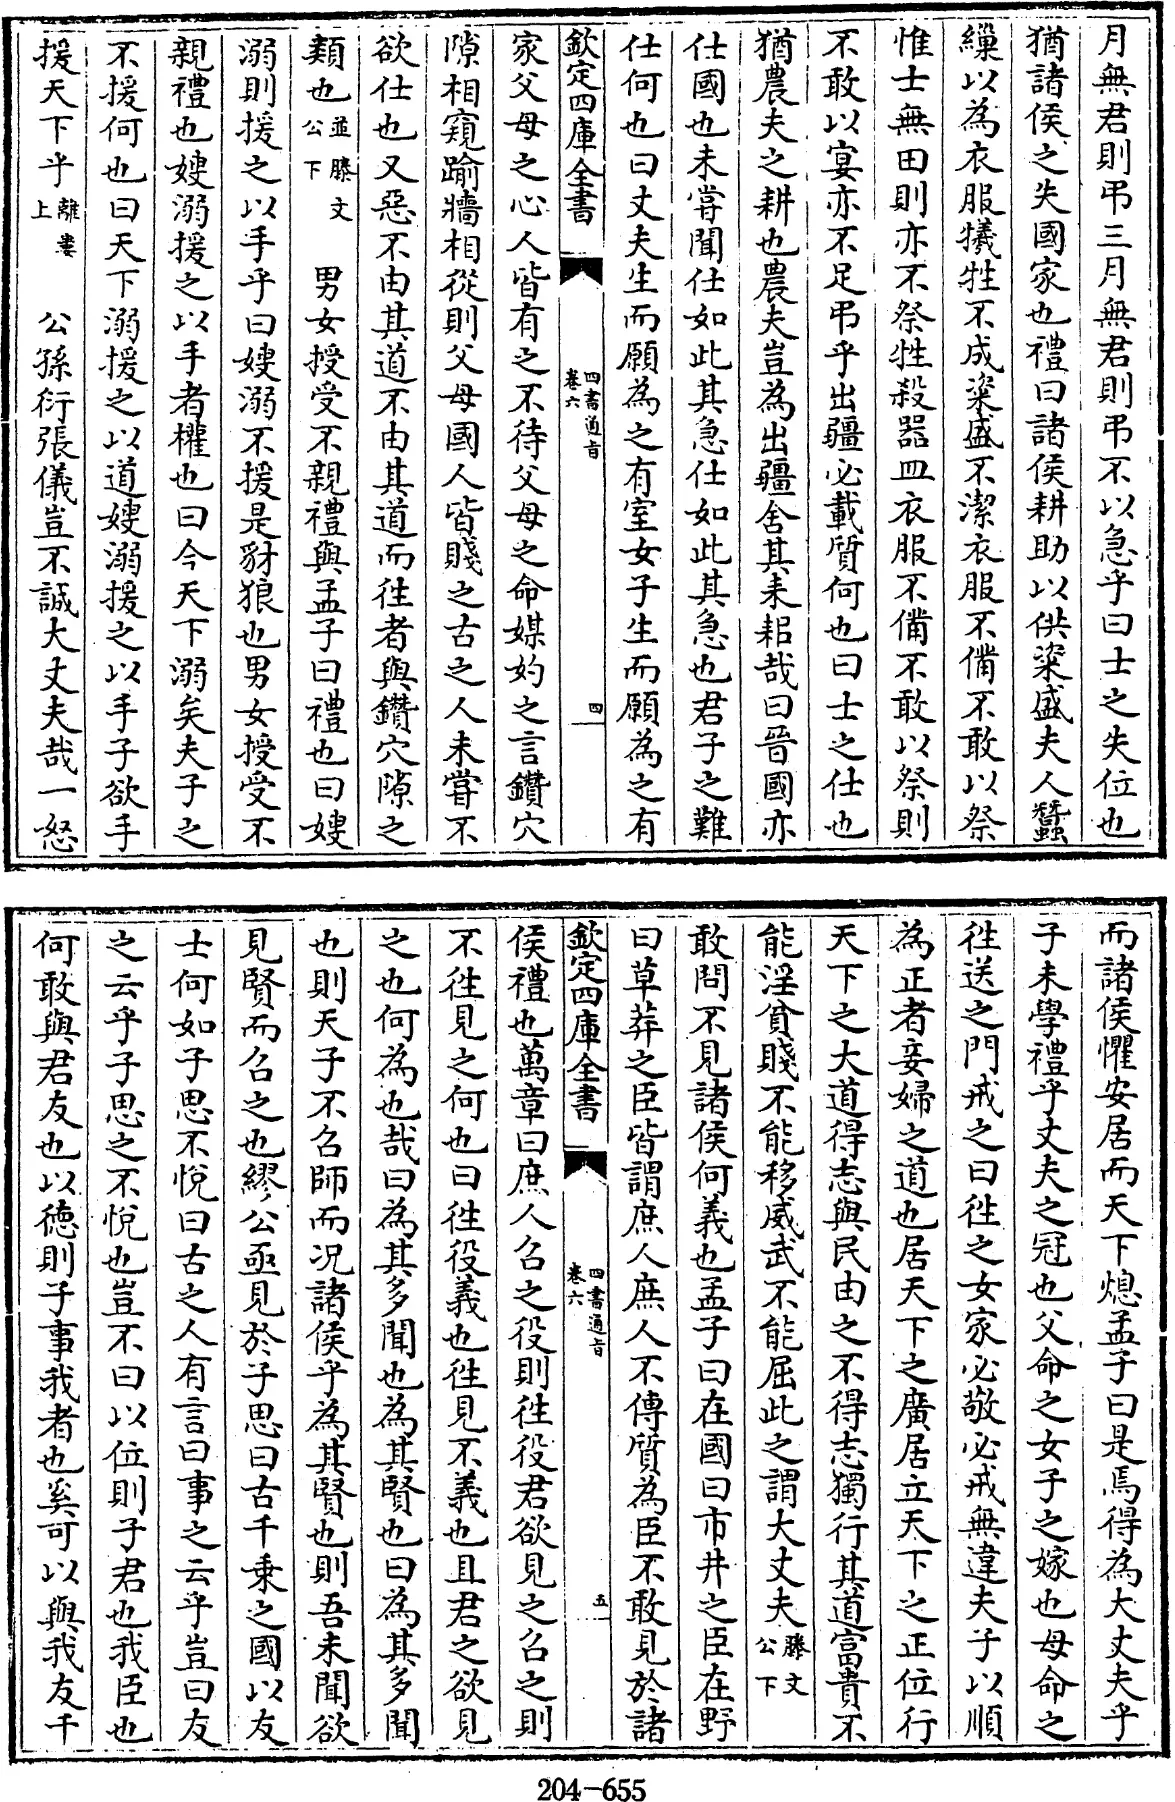 月無君則弔三月無君則弔不以急乎曰士之失位也
猶諸侯之失國家也禮曰諸侯耕助以供粢盛夫人蠶
繅以為衣服犧牲不成粢盛不潔衣服不備不敢以祭
惟士無田則亦不祭牲殺器皿衣服不備不敢以祭則
不敢以宴亦不足弔乎出疆必載質何也曰士之仕也
猶農夫之耕也農夫豈為出疆舍其耒耜哉曰晉國亦
仕國也未嘗聞仕如此其急仕如此其急也君子之難
仕何也曰丈夫生而願為之有室女子生而願為之有
欽定四庫全書
四書通旨
卷六
四
家父母之心人皆有之不待父母之命媒妁之言鑽穴
隙相窺踰牆相從則父母國人皆賤之古之人未嘗不
欲仕也又惡不由其道不由其道而徃者與鑽穴隙之
類也並滕文公下 男女授受不親禮與孟子曰禮也曰嫂
溺則援之以手乎曰嫂溺不援是豺狼也男女授受不
親禮也嫂溺援之以手者權也曰今天下溺矣夫子之
不援何也曰天下溺援之以道嫂溺援之以手子欲手
援天下乎離婁上 公孫衍張儀豈不誠大丈夫哉一怒
而諸侯懼安居而天下熄孟子曰是焉得為大丈夫乎
子未學禮乎丈夫之冠也父命之女子之嫁也母命之
徃送之門戒之曰徃之女家必敬必戒無違夫子以順
為正者妾婦之道也居天下之廣居立天下之正位行
天下之大道得志與民由之不得志獨行其道富貴不
能淫貧賤不能移威武不能屈此之謂大丈夫滕文公下
敢問不見諸侯何義也孟子曰在國曰市井之臣在野
曰草莽之臣皆謂庶人庶人不傳質為臣不敢見於諸
欽定四庫全書
四書通旨
卷六
五
侯禮也萬章曰庶人召之役則徃役君欲見之召之則
不徃見之何也曰徃役義也徃見不義也且君之欲見
之也何為也哉曰為其多聞也為其賢也曰為其多聞
也則天子不召師而况諸侯乎為其賢也則吾未聞欲
見賢而召之也繆公亟見於子思曰古千乗之國以友
士何如子思不悅曰古之人有言曰事之云乎豈曰友
之云乎子思之不悅也豈不曰以位則子君也我臣也
何敢與君友也以德則子事我者也奚可以與我友千
204-655